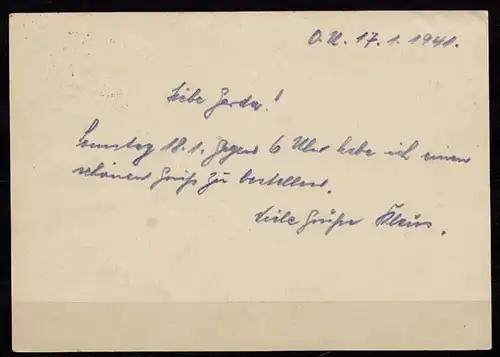 O.U. 17.1.1941.
Liebe Gerda!
Samstag 18.1. gegen 6 Uhr habe ich einen
schönen Gruß zu bestellen.
Viele Grüße Klaus.